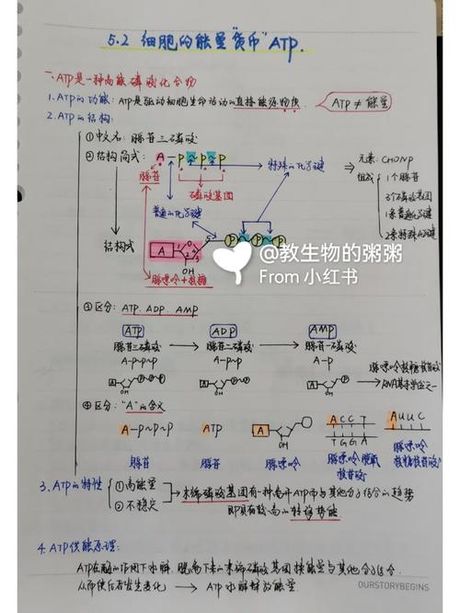 5.2 细胞的能量"货币"ATP.
一. ATP是一种高能磷酸化合物
1. ATP的功能: ATP是驱动细胞生命活动的直接能源物质. ATP ≠ 能量
2. ATP的结构:
①中文名: 腺苷三磷酸
②结构简式: A — P ~ P ~ P → 特殊的化学键 ⇒ 元素: CHONP
腺苷 磷酸基团 组成 1个腺苷
3个磷酸基团
普通的化学键 1个普通的化学键
2个特殊的化学键
结构式
A OH P P P
腺嘌呤+核糖
@教生物的粥粥
From 小红书
③区分: ATP. ADP AMP
ATP ADP AMP
腺苷三磷酸 → 腺苷二磷酸 → 腺苷一磷酸
A-P~P~P A-P~P A-P 腺嘌呤核糖核苷酸
A P P P A P P A P → RNA基本单位之一
④区分: "A"的含义
A-P~P~P ATP A OH A C C T A U U C
T G G A
腺苷 腺苷 腺嘌呤 腺嘌呤脱氧核苷酸 腺嘌呤核糖核苷酸
3. ATP的特性 ①高能量
②不稳定
→ 末端磷酸基团有一种离开ATP而与其他分子结合的趋势
即具有较高的转移势能
4. ATP供能原理:
ATP在酶的作用下水解 脱离下来的末端磷酸基团挟能量与其他分子结合.
从而使后者发生变化 → ATP水解释放能量
OURSTORYBEGINS